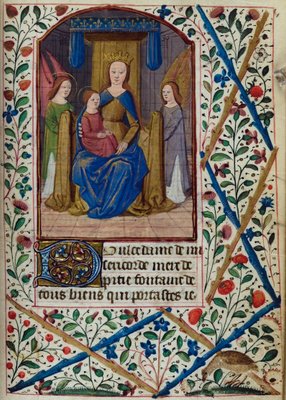 Dulce dame de mi
sericorde mere de
pitie fontaine de
tous biens qui portastes ie